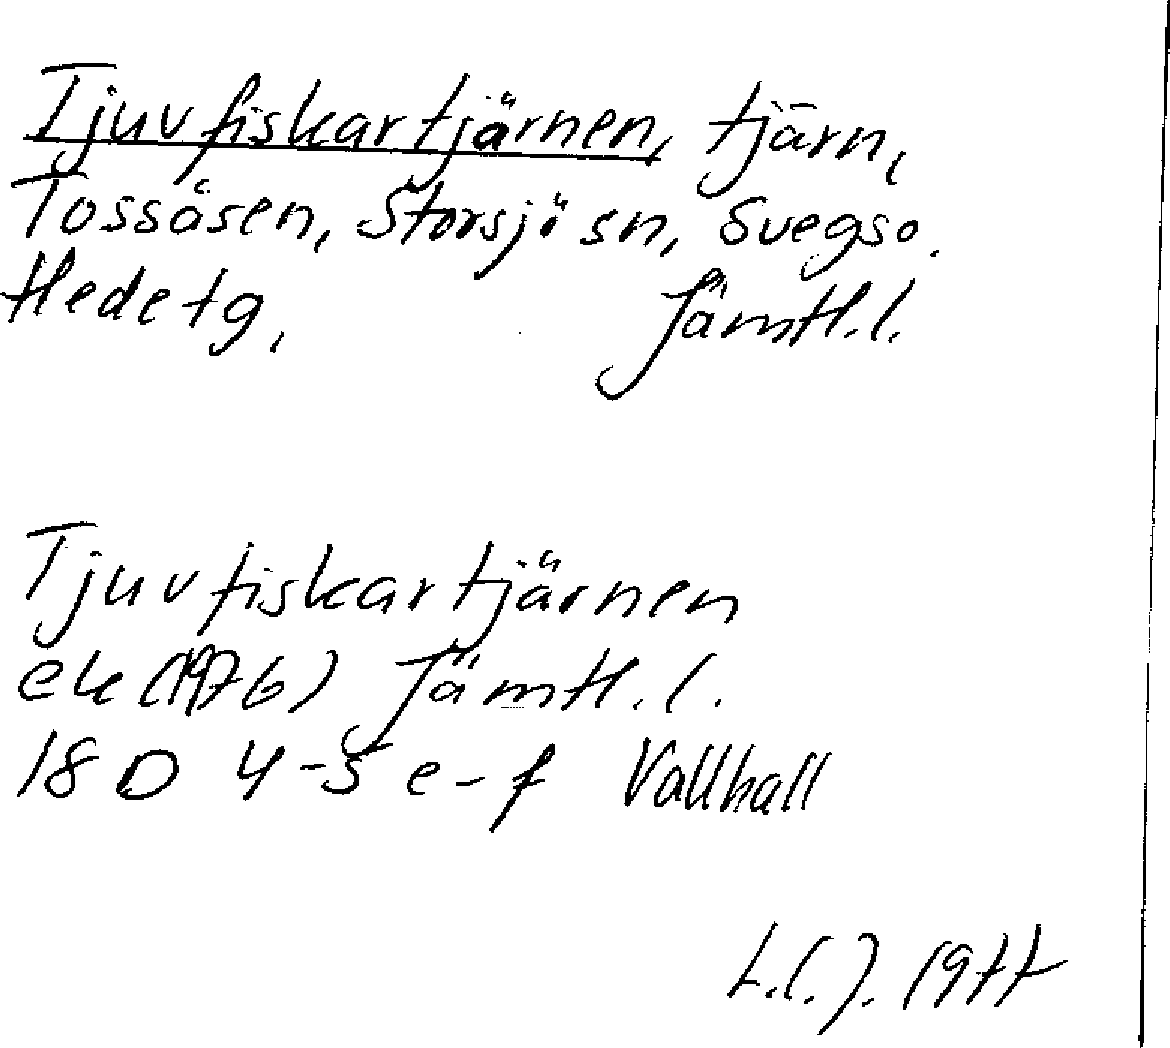 Tjuvfiskartjärnen, tjärn,
Tossåsen, Storsjö sn, Svegs o.
Hede tg, Jämtl. l.
Tjuvfiskartjärnen
ek (1976) Jämtl. l.
18 D 4-5 e-f Vallhall
1977